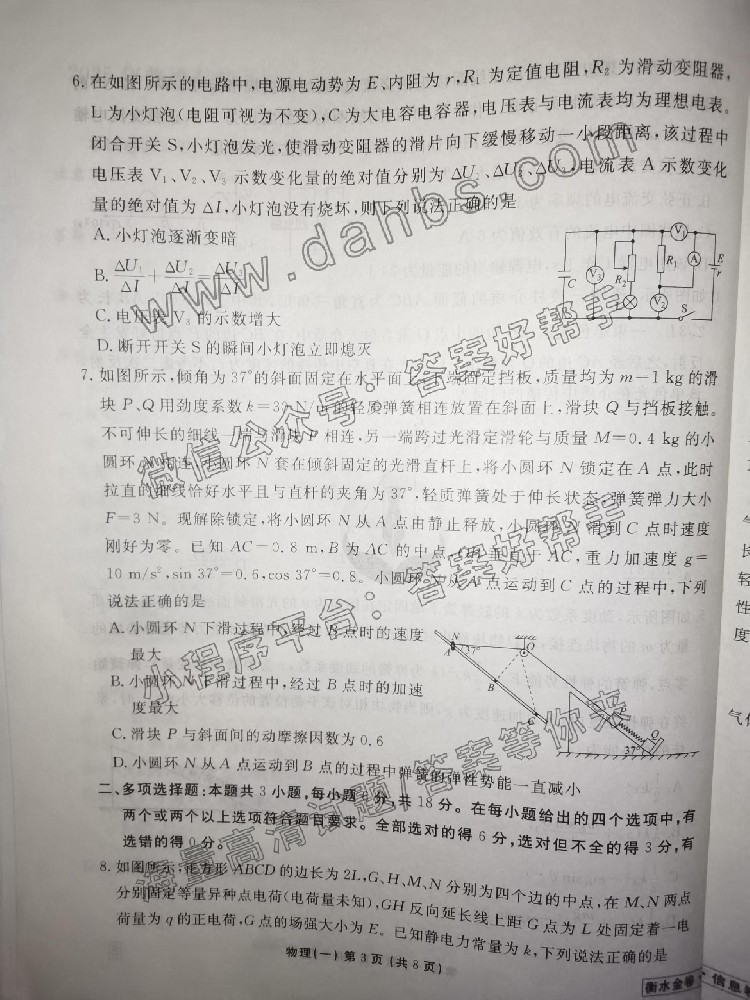 6. 在如图所示的电路中,电源电动势为E、内阻为r,R₁为定值电阻,R₂为滑动变阻器,
L为小灯泡(电阻可视为不变),C为大电容电容器,电压表与电流表均为理想电表。
闭合开关S,小灯泡发光,使滑动变阻器的滑片向下缓慢移动一小段距离,该过程中
电压表V₁、V₂、V₃示数变化量的绝对值分别为ΔU₁、ΔU₂、ΔU₃,电流表A示数变化
量的绝对值为ΔI,小灯泡没有烧坏,则下列说法正确的是
A. 小灯泡逐渐变暗
B. ΔU₁/ΔI + ΔU₂/ΔI = ΔU₃/ΔI
C. 电压表V₃的示数增大
D. 断开开关S的瞬间小灯泡立即熄灭
C V₃ R₂ V₁ R₁ A E r V₂ S
7. 如图所示,倾角为37°的斜面固定在水平面上,下端固定挡板,质量均为m=1 kg的滑
块P、Q用劲度系数k=30 N/m的轻质弹簧相连放置在斜面上,滑块Q与挡板接触。
不可伸长的细线一端与滑块P相连,另一端跨过光滑定滑轮与质量M=0.4 kg的小
圆环N相连,小圆环N套在倾斜固定的光滑直杆上,将小圆环N锁定在A点,此时
拉直的细线恰好水平且与直杆的夹角为37°,轻质弹簧处于伸长状态,弹簧弹力大小
F=3 N。现解除锁定,将小圆环N从A点由静止释放,小圆环N滑到C点时速度
刚好为零。已知AC=0.8 m,B为AC的中点,OB垂直于AC,重力加速度g=
10 m/s²,sin 37°=0.6,cos 37°=0.8。小圆环N从A点运动到C点的过程中,下列
说法正确的是
A. 小圆环N下滑过程中,经过B点时的速度
最大
B. 小圆环N下滑过程中,经过B点时的加速
度最大
C. 滑块P与斜面间的动摩擦因数为0.6
D. 小圆环N从A点运动到B点的过程中弹簧的弹性势能一直减小
N A 37° O B C P Q 37°
二、多项选择题:本题共3小题,每小题6分,共18分。在每小题给出的四个选项中,有
两个或两个以上选项符合题目要求。全部选对的得6分,选对但不全的得3分,有
选错的得0分。
8. 如图所示,正方形ABCD的边长为2L,G、H、M、N分别为四个边的中点,在M、N两点
分别固定等量异种点电荷(电荷量未知),GH反向延长线上距G点为L处固定着一电
荷量为q的正电荷,G点的场强大小为E。已知静电力常量为k,下列说法正确的是
物理(一) 第3页(共8页)
衡水金卷·信息卷
www.danbs.com
微信公众号:答案好帮手
小程序平台:答案好帮手
海量高清试题/答案等你来
长
轻
性
度
气体